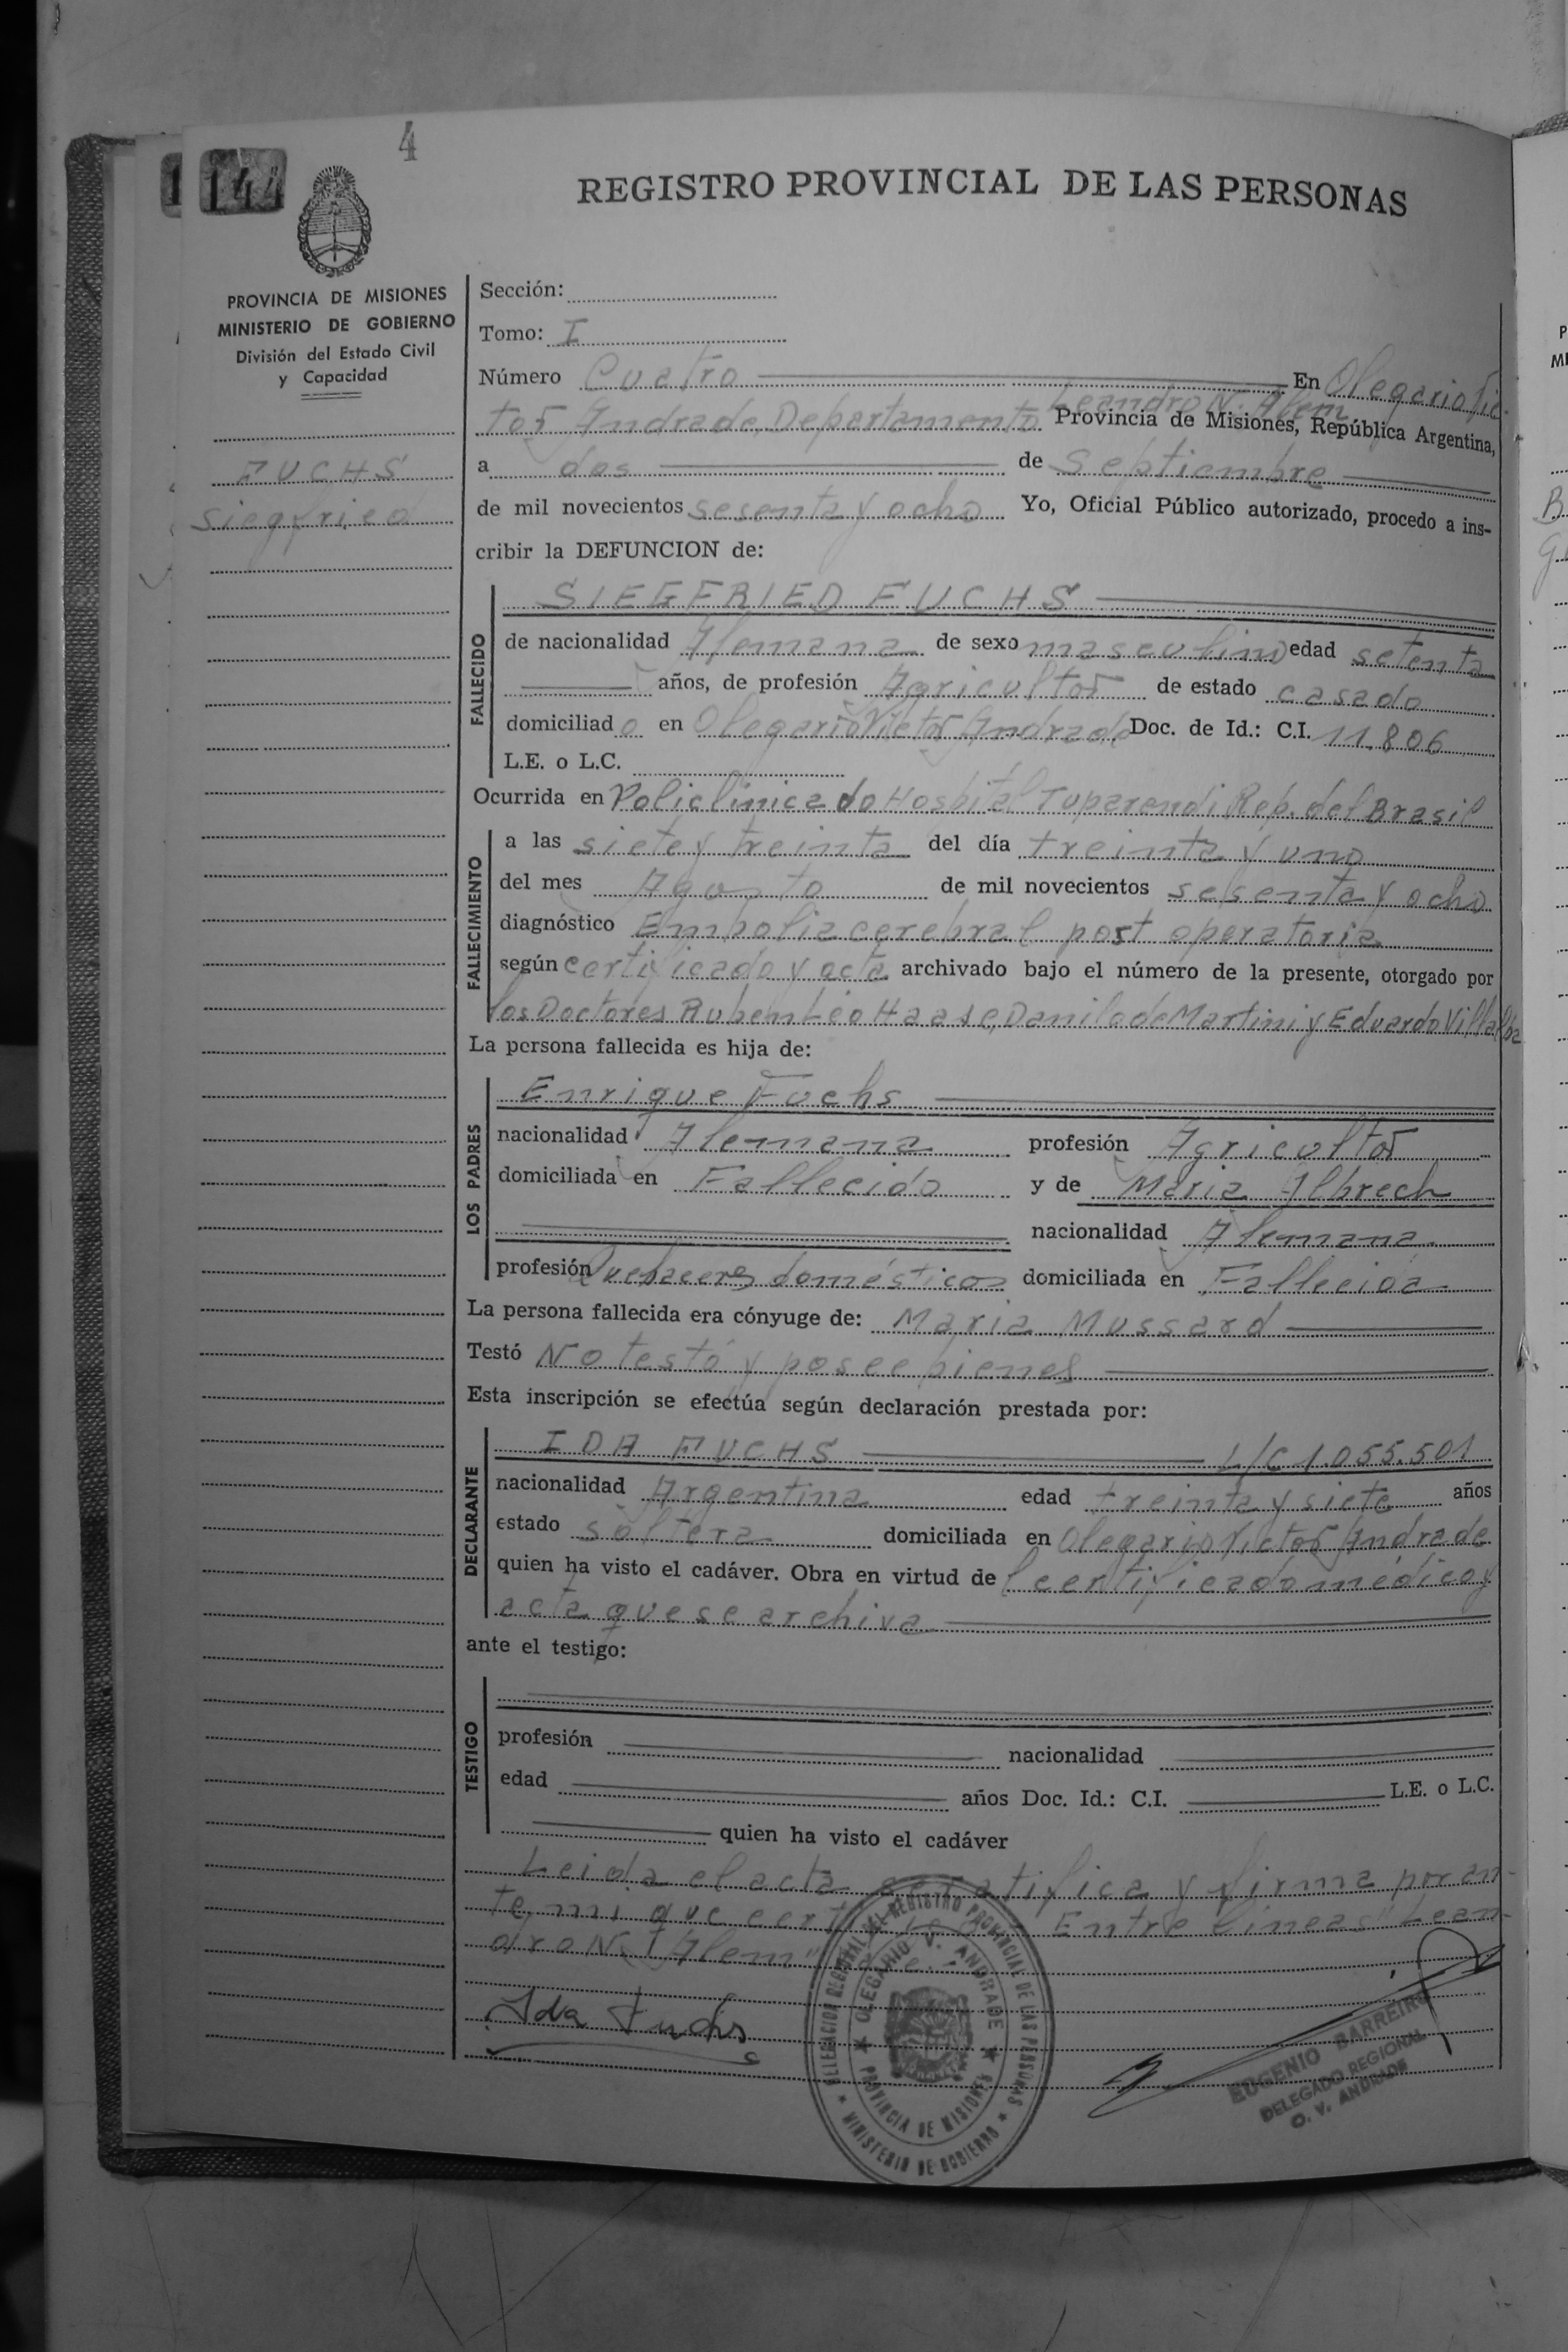 4
144
REGISTRO PROVINCIAL DE LAS PERSONAS
PROVINCIA DE MISIONES
MINISTERIO DE GOBIERNO
División del Estado Civil
y Capacidad
FUCHS
Siegfried
Sección:
Tomo: I
Número Cuatro En Olegario Vic-
Leandro N. Alem
tor Andrade, Departamento Provincia de Misiones, República Argentina,
a dos de Septiembre
de mil novecientos sesenta y ocho Yo, Oficial Público autorizado, procedo a ins-
cribir la DEFUNCION de:
FALLECIDO
SIEGFRIED FUCHS
de nacionalidad Alemana de sexo masculino edad setenta
años, de profesión Agricultor de estado casado
domiciliado en Olegario Victor Andrade Doc. de Id.: C.I. 11.806
L.E. o L.C.
Ocurrida en Policlínica do Hospital Tuparendi Rep. del Brasil
FALLECIMIENTO
a las siete y treinta del día treinta y uno
del mes Agosto de mil novecientos sesenta y ocho
diagnóstico Embolia cerebral post operatoria
según certificado y acta archivado bajo el número de la presente, otorgado por
los Doctores Ruben Leo Haase, Danilo de Martini y Eduardo Villalba
La persona fallecida es hija de:
LOS PADRES
Enrique Fuchs
nacionalidad Alemana profesión Agricultor
domiciliada en Fallecido y de Maria Albrech
nacionalidad Alemana
profesión Quehaceres domésticos domiciliada en Fallecida
La persona fallecida era cónyuge de: Maria Mussard
Testó No testó y posee bienes
Esta inscripción se efectúa según declaración prestada por:
DECLARANTE
IDA FUCHS L/C 1.055.501
nacionalidad Argentina edad treinta y siete años
estado soltera domiciliada en Olegario Victor Andrade
quien ha visto el cadáver. Obra en virtud de certificado médico y
acta que se archiva
ante el testigo:
TESTIGO
profesión nacionalidad
edad años Doc. Id.: C.I. L.E. o L.C.
quien ha visto el cadáver
Leida el acta se ratifica y firma por an-
te mi que Entre lineas "Lean-
dro N. Alem"
Ida Fuchs
DELEGACION REGIONAL DEL REGISTRO PROVINCIAL DE LAS PERSONAS
MINISTERIO DE GOBIERNO
OLEGARIO V. ANDRADE
PROVINCIA DE MISIONES
EUGENIO BARREIRO
DELEGADO REGIONAL
O. V. ANDRADE